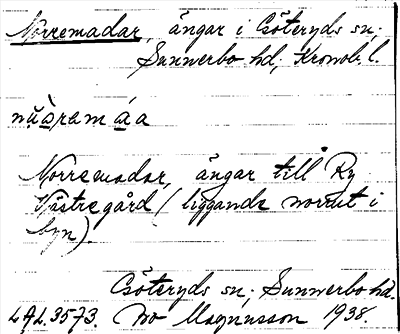 Norremadar, ängar i Göteryds sn;
Sunnerbo hd; Kronob. l.
nùs̀ramáa
Norremadar, ängar till Ry
Västregård (liggande norrut i
byn).
Göteryds sn; Sunnerbo hd.
LAL.3573. Ivo Magnusson 1938.